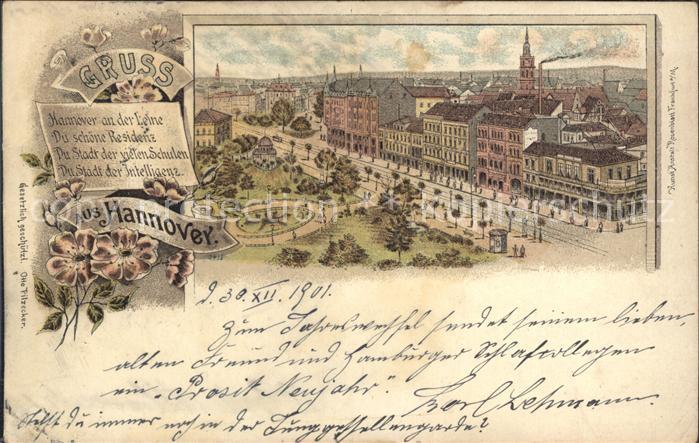 GRUSS
Hannover an der Leine
Du schöne Residenz
Du Stadt der vielen Schulen
Du Stadt der Intelligenz.
aus Hannover.
Gesetzlich geschützt. Otto Pilzecker.
d. 30. XII. 1901.
Zum Jahreswechsel sendet seinem lieben,
alten Freund und Hamburger Schlafcollegen
ein „Prosit Neujahr“. Karl Lehmann.
Stehst du immer noch in der Junggesellengarde?